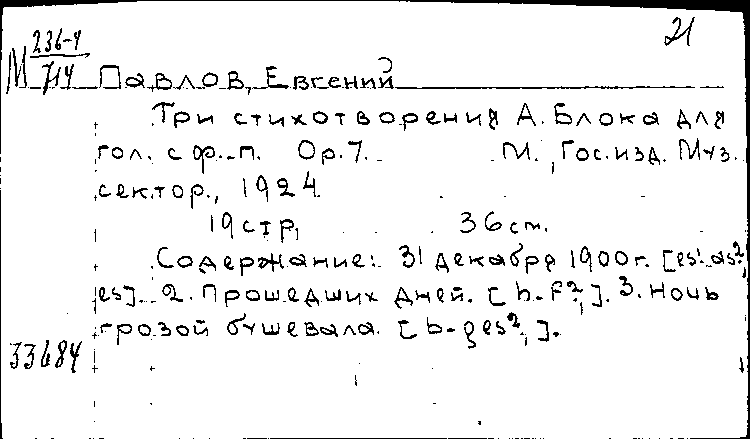 21
М 236-4
714 Павлов, Евгений
Три стихотворения А. Блока для
гол. с ф.-п. Op. 7. М., Гос. изд. Муз.
сектор., 1924
19 стр, 36 cm.
Содержание: 31 декабря 1900 г. [es¹-as²,
es]. 2. Прошедших дней. [h-f²,]. 3. Ночь
грозой бушевала. [b-ges²,].
33684